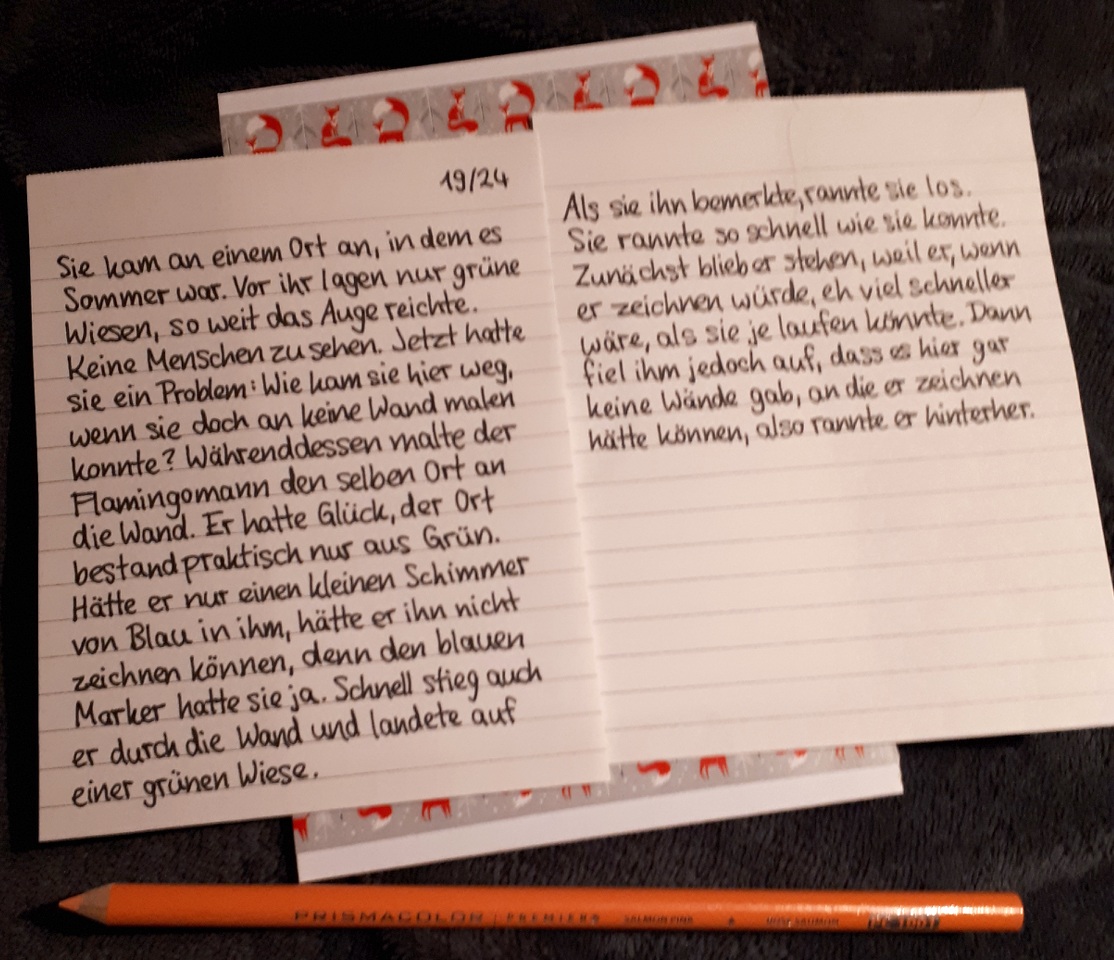 19/24
Sie kam an einem Ort an, in dem es
Sommer war. Vor ihr lagen nur grüne
Wiesen, so weit das Auge reichte.
Keine Menschen zu sehen. Jetzt hatte
sie ein Problem: Wie kam sie hier weg,
wenn sie doch an keine Wand malen
konnte? Währenddessen malte der
Flamingomann den selben Ort an
die Wand. Er hatte Glück, der Ort
bestand praktisch nur aus Grün.
Hätte er nur einen kleinen Schimmer
von Blau in ihm, hätte er ihn nicht
zeichnen können, denn den blauen
Marker hatte sie ja. Schnell stieg auch
er durch die Wand und landete auf
einer grünen Wiese.
Als sie ihn bemerkte, rannte sie los.
Sie rannte so schnell wie sie konnte.
Zunächst blieb er stehen, weil er, wenn
er zeichnen würde, eh viel schneller
wäre, als sie je laufen könnte. Dann
fiel ihm jedoch auf, dass es hier gar
keine Wände gab, an die er zeichnen
hätte können, also rannte er hinterher.
PRISMACOLOR PREMIER SALMON PINK